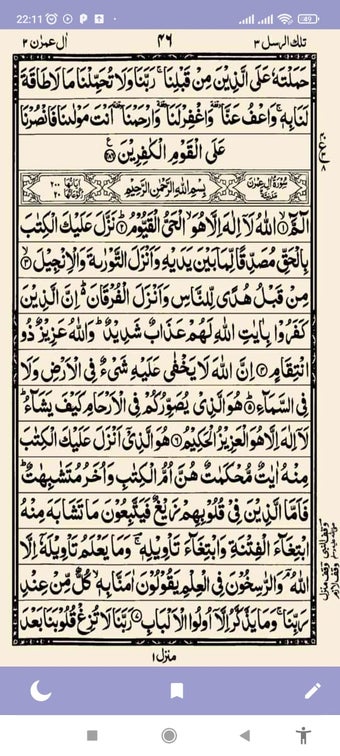 22:11
49
تلك الرسل ٣
٤٦
ال عمرٰن ٣
حَمَلْتَهٗ عَلَى الَّذِيْنَ مِنْ قَبْلِنَا ۚ رَبَّنَا وَلَا تُحَمِّلْنَا مَا لَا طَاقَةَ
لَنَا بِهٖ ۚ وَاعْفُ عَنَّا ۥ وَاغْفِرْ لَنَا ۥ وَارْحَمْنَا ۥ اَنْتَ مَوْلٰىنَا فَانْصُرْنَا
عَلَى الْقَوْمِ الْكٰفِرِيْنَ
سُوْرَةُ اٰلِ عِمْرٰنَ مَدَنِيَّةٌ بِسْمِ اللهِ الرَّحْمٰنِ الرَّحِيْمِ اٰيَاتُهَا ٢٠٠ رُكُوْعَاتُهَا ٢٠
الٓمّٓ ۝١ اللهُ لَآ اِلٰهَ اِلَّا هُوَ ۙ الْحَيُّ الْقَيُّوْمُ ۝٢ نَزَّلَ عَلَيْكَ الْكِتٰبَ
بِالْحَقِّ مُصَدِّقًا لِّمَا بَيْنَ يَدَيْهِ وَاَنْزَلَ التَّوْرٰىةَ وَالْاِنْجِيْلَ ۝٣
مِنْ قَبْلُ هُدًى لِّلنَّاسِ وَاَنْزَلَ الْفُرْقَانَ ۥ اِنَّ الَّذِيْنَ
كَفَرُوْا بِاٰيٰتِ اللهِ لَهُمْ عَذَابٌ شَدِيْدٌ ۭ وَاللهُ عَزِيْزٌ ذُو
انْتِقَامٍ ۝٤ اِنَّ اللهَ لَا يَخْفٰى عَلَيْهِ شَىْءٌ فِى الْاَرْضِ وَلَا
فِى السَّمَآءِ ۝٥ هُوَ الَّذِىْ يُصَوِّرُكُمْ فِى الْاَرْحَامِ كَيْفَ يَشَآءُ ۭ
لَآ اِلٰهَ اِلَّا هُوَ الْعَزِيْزُ الْحَكِيْمُ ۝٦ هُوَ الَّذِىْٓ اَنْزَلَ عَلَيْكَ الْكِتٰبَ
مِنْهُ اٰيٰتٌ مُّحْكَمٰتٌ هُنَّ اُمُّ الْكِتٰبِ وَاُخَرُ مُتَشٰبِهٰتٌ ۭ
فَاَمَّا الَّذِيْنَ فِىْ قُلُوْبِهِمْ زَيْغٌ فَيَتَّبِعُوْنَ مَا تَشَابَهَ مِنْهُ
ابْتِغَآءَ الْفِتْنَةِ وَابْتِغَآءَ تَاْوِيْلِهٖ ۚ وَمَا يَعْلَمُ تَاْوِيْلَهٗٓ اِلَّا
اللهُ ۘ وَالرّٰسِخُوْنَ فِى الْعِلْمِ يَقُوْلُوْنَ اٰمَنَّا بِهٖ ۙ كُلٌّ مِّنْ عِنْدِ
رَبِّنَا ۚ وَمَا يَذَّكَّرُ اِلَّآ اُولُوا الْاَلْبَابِ ۝٧ رَبَّنَا لَا تُزِغْ قُلُوْبَنَا بَعْدَ
منزل ١